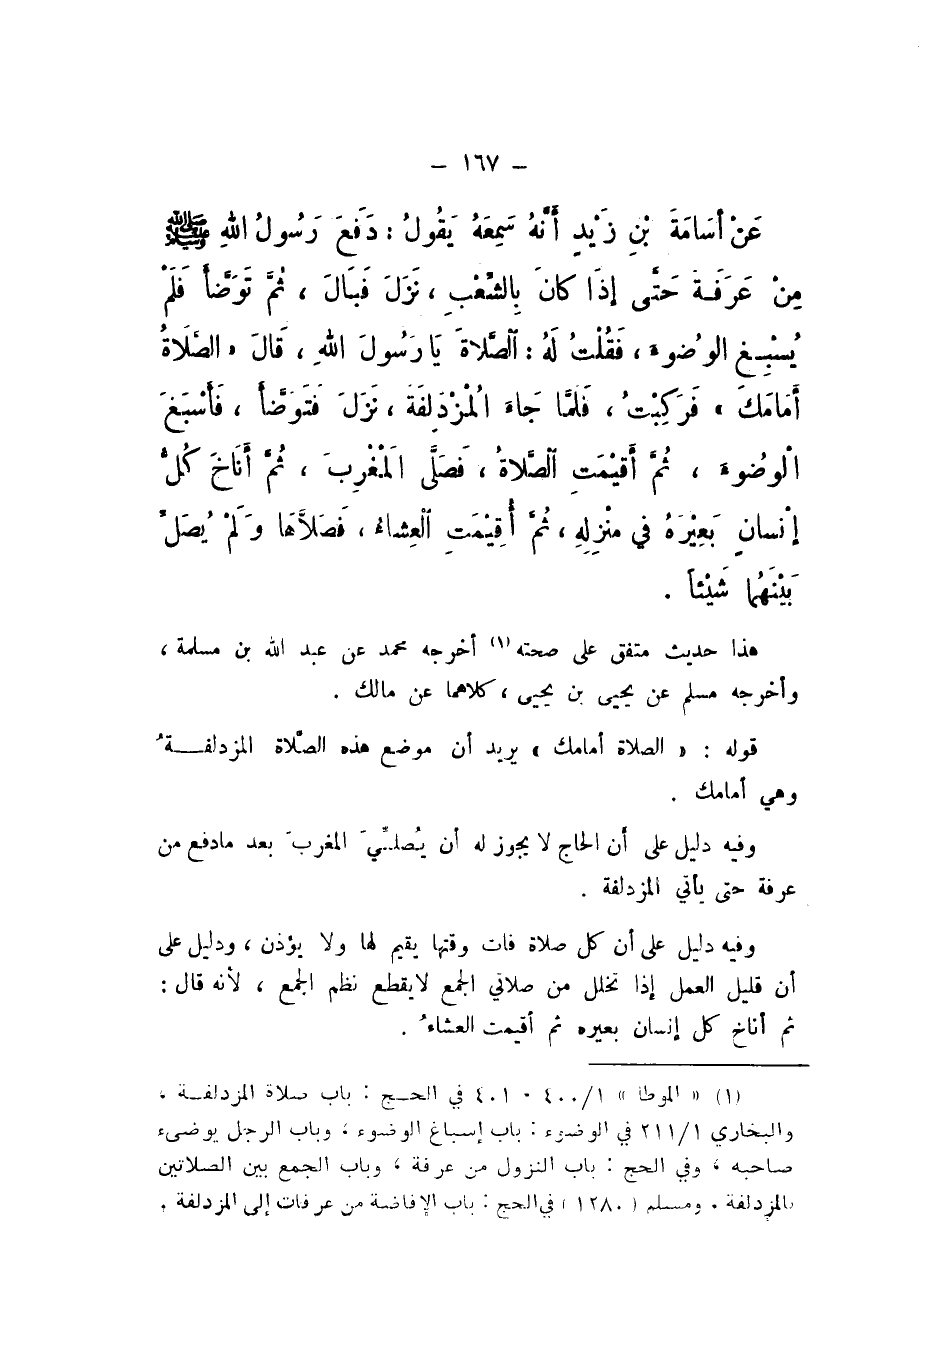 – ١٦٧ –
عَنْ أُسَامَةَ بْنِ زَيْدٍ أَنَّهُ سَمِعَهُ يَقُولُ : دَفَعَ رَسُولُ اللهِ ﷺ
مِنْ عَرَفَةَ حَتَّى إِذَا كانَ بِالشِّعْبِ ، نَزَلَ فَبَالَ ، ثُمَّ تَوَضَّأَ فَلَمْ
يُسْبِغِ الوُضوءَ ، فَقُلْتُ لَهُ : الصَّلاةَ يَا رَسُولَ اللهِ ، قَالَ « الصَّلَاةُ
أَمَامَكَ » فَرَكِبْتُ ، فَلَمَّا جَاءَ الْمُزْدَلِفَةَ ، نَزَلَ فَتَوَضَّأَ ، فَأَسْبَغَ
الْوُضوءَ ، ثُمَّ أُقِيْمَتِ الصَّلاةُ ، فَصَلَّى الْمَغْرِبَ ، ثُمَّ أَنَاخَ كُلُّ
إِنْسانٍ بَعِيْرَهُ في مَنْزِلِهِ ، ثُمَّ أُقِيْمَتِ الْعِشاءُ ، فَصَلَّاهَا وَلَمْ يُصَلِّ
بَيْنَهُما شَيْئاً .
هذا حديث متفق على صحته (١) أخرجه محمد عن عبد الله بن مسلمة ،
وأخرجه مسلم عن يحيى بن يحيى ، كلاهما عن مالك .
قوله : « الصلاة أمامك » يريد أن موضع هذه الصَّلاة المزدلفـــةُ
وهي أمامك .
وفيه دليل على أن الحاج لا يجوز له أن يُصلـِّيَ المغربَ بعد مادفع من
عرفة حتى يأتي المزدلفة .
وفيه دليل على أن كل صلاة فات وقتها يقيم لها ولا يؤذن ، ودليل على
أن قليل العمل إذا تخلل من صلاتي الجمع لايقطع نظم الجمع ، لأنه قال :
ثم أناخ كل إنسان بعيره ثم أقيمت العشاءُ .
(١) « الموطأ » ٤٠٠/١ - ٤٠١ في الحـج : باب صلاة المزدلفـة ،
والبخاري ٢١١/١ في الوضوء : باب إسباغ الوضوء ، وباب الرجل يوضىء
صاحبه ، وفي الحج : باب النزول من عرفة ، وباب الجمع بين الصلاتين
بالمزدلفة . ومسلم ( ١٢٨٠ ) في الحج : باب الإفاضة من عرفات إلى المزدلفة .